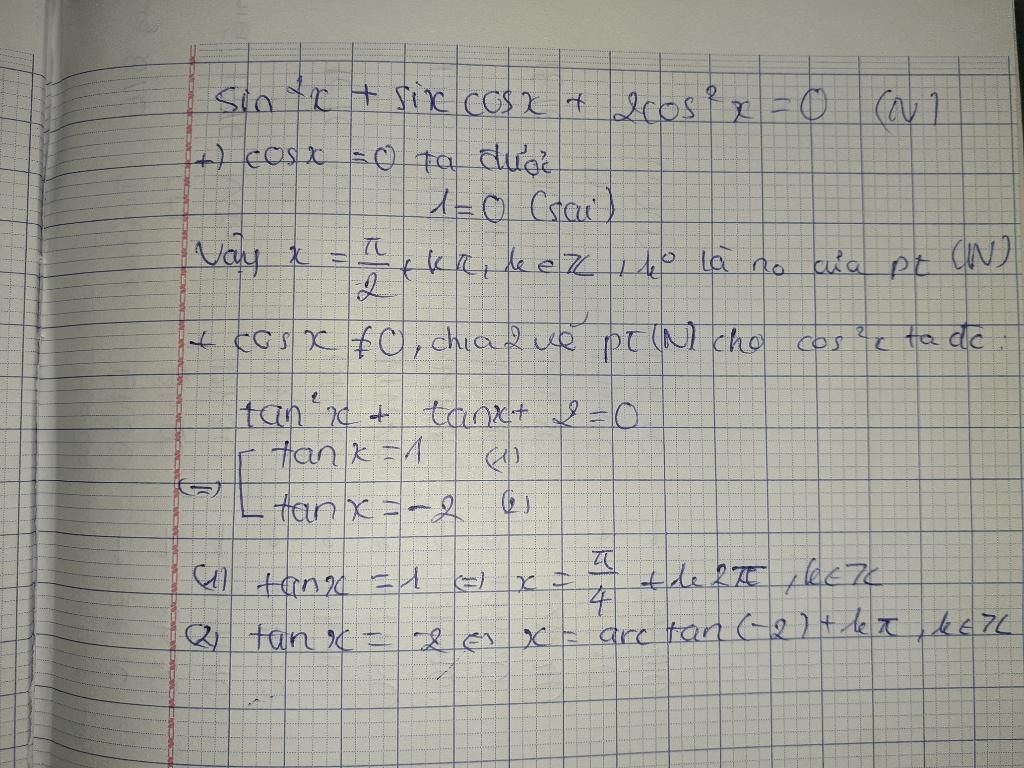 sin²x + six cosx + 2cos²x = 0 (N)
+) cosx = 0 ta được
1 = 0 (sai)
Vậy x = π/2 + kπ, k ∈ Z, ko là no của pt (N)
+ cosx ≠ 0, chia 2 vế pt (N) cho cos²x ta đc:
tan²x + tanx + 2 = 0
(=) [ tanx = 1 (1)
tanx = -2 (2)
(1) tanx = 1 (=) x = π/4 + k2π, k ∈ Z
(2) tanx = -2 (=) x = arctan(-2) + kπ, k ∈ Z